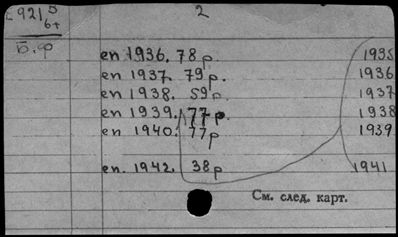 2
Б.ф
en 1936. 78 p. 1935
en 1937. 79 p. 1936
en 1938. 59 p. 1937
en 1939. 77 p. 1938
en 1940. 77 p 1939
en. 1942. 38 p 1941
См. след. карт.